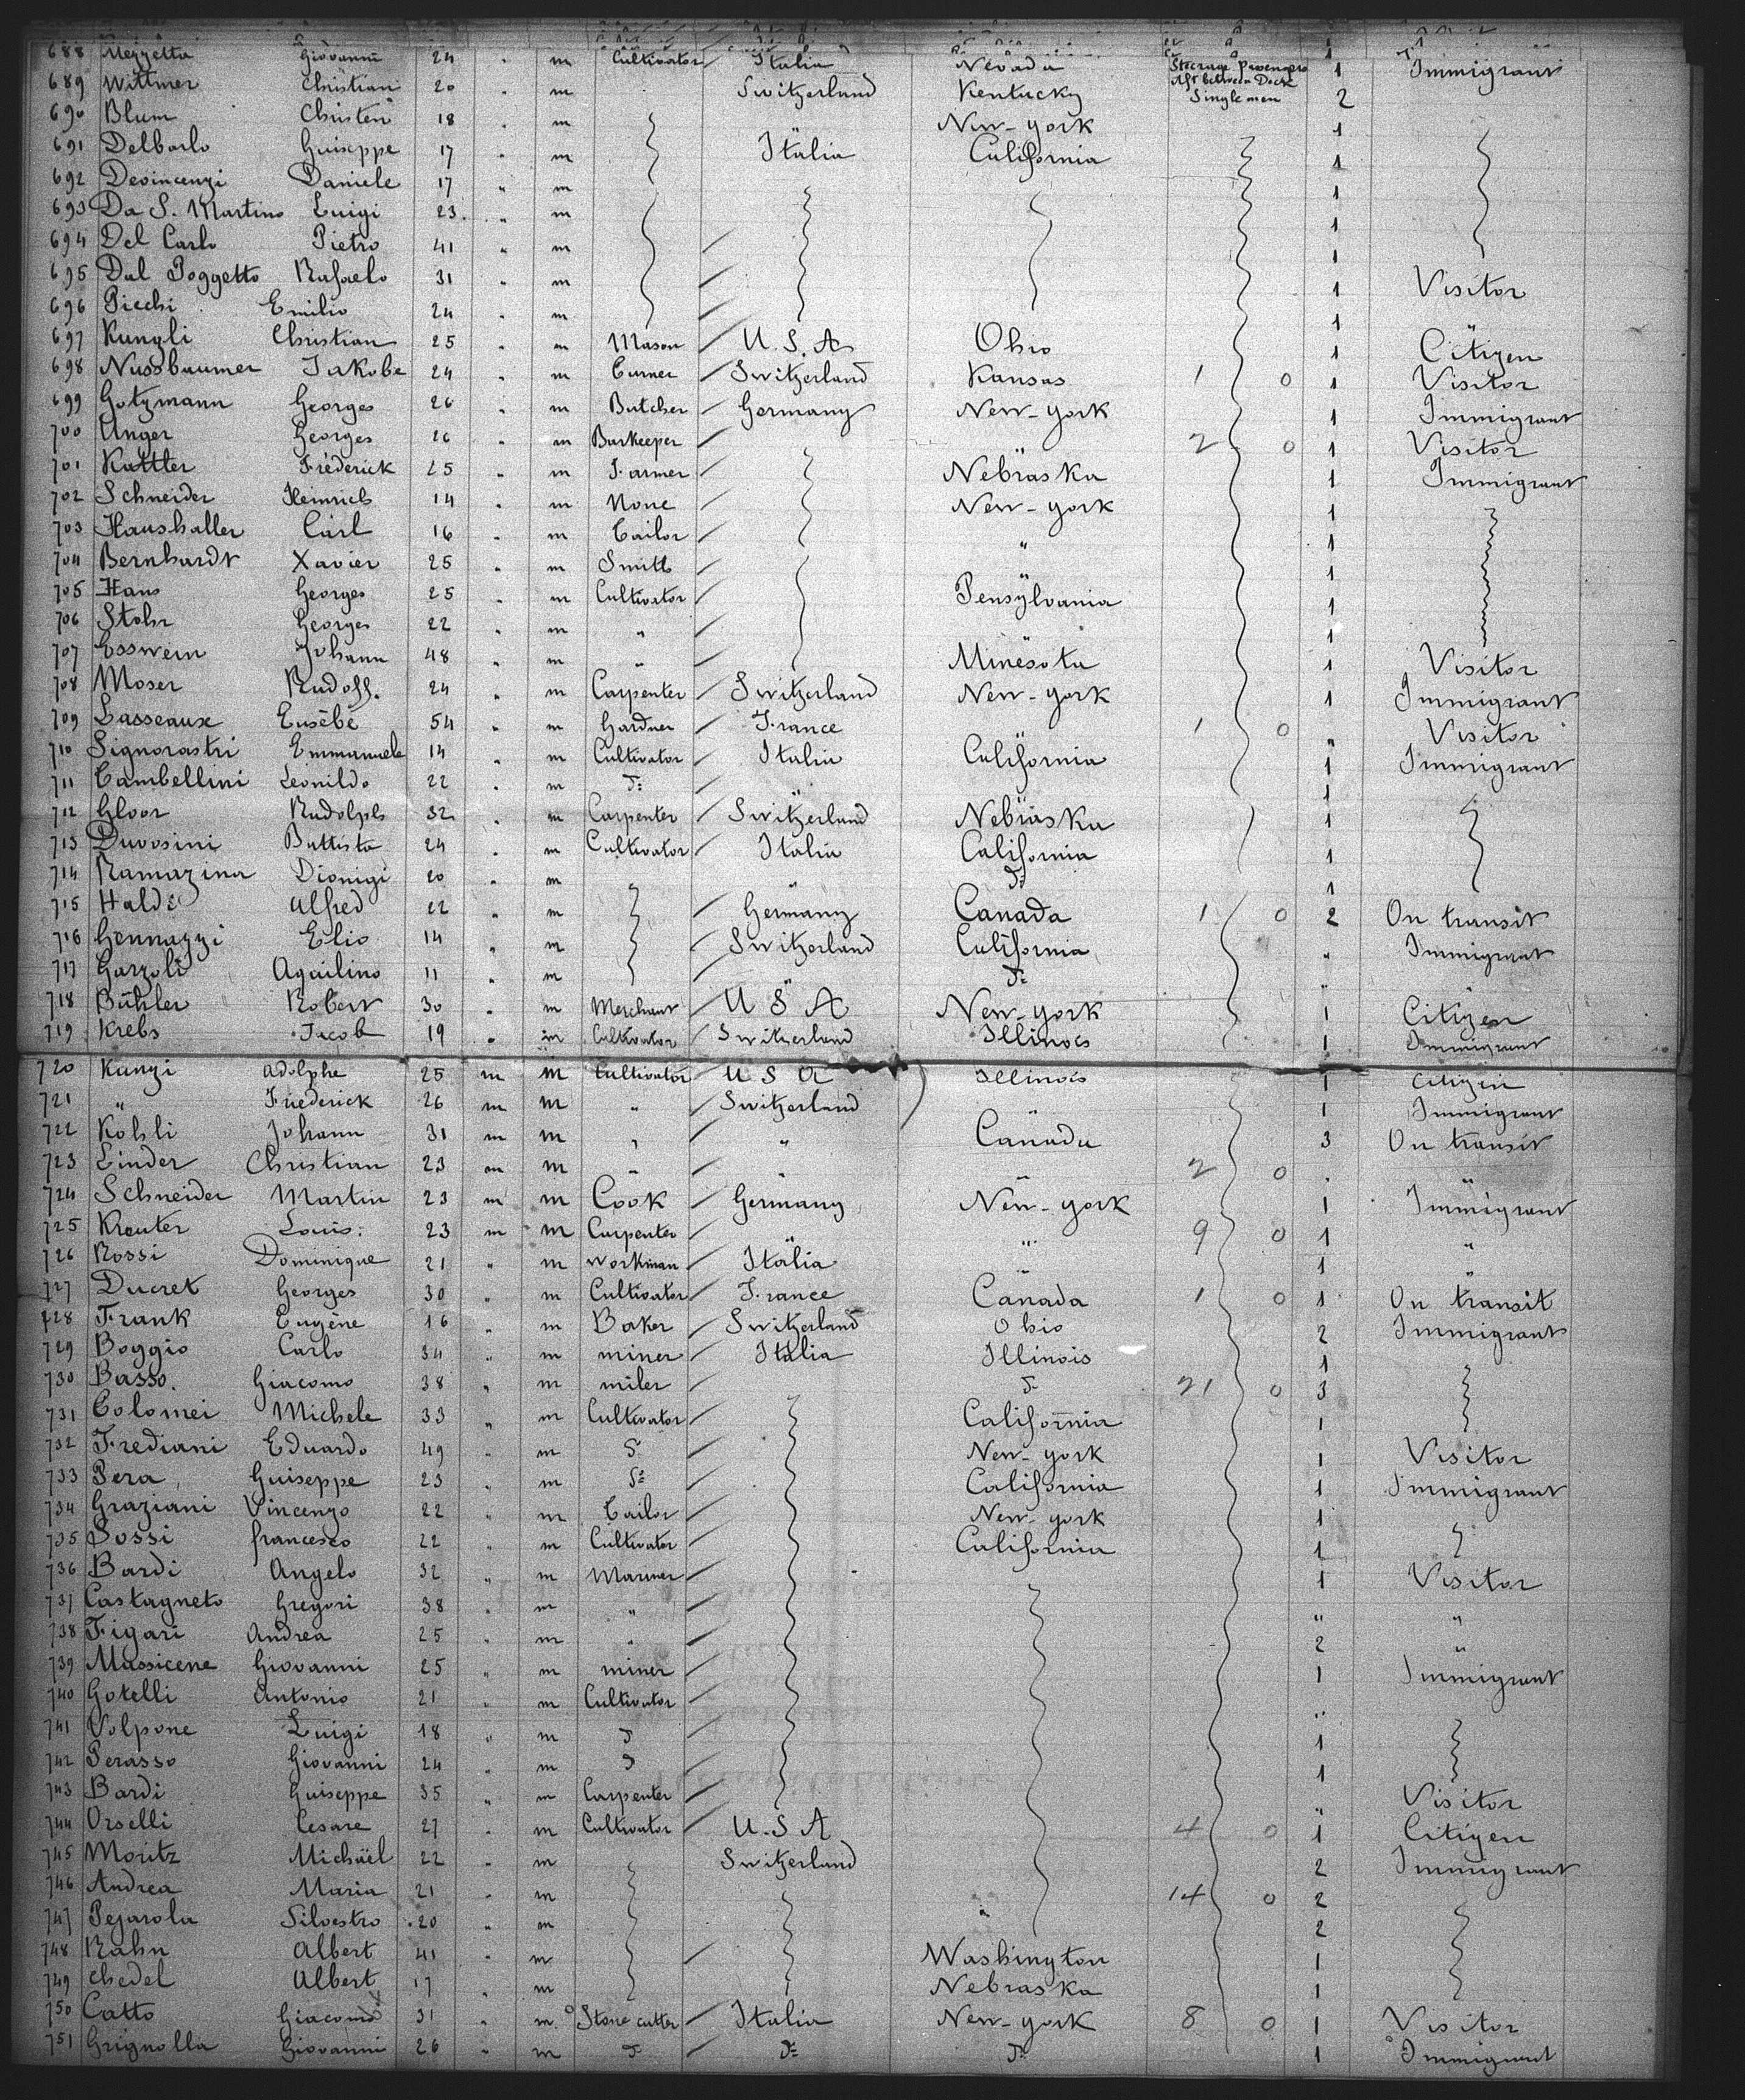 688 Mezzetta Giovanni 24 " m Cultivator Italia Nevada Steerage Passengers Aft between Deck Single men 1 Immigrant
689 Wittmer Christian 20 " m Switzerland Kentucky 2
690 Blum Christen 18 " m New-york 1
691 Delbarlo Guiseppe 17 " m Italia California 1
692 Devincenzi Daniele 17 " m 1
693 Da S. Martino Luigi 23 " m 1
694 Del Carlo Pietro 41 " m 1
695 Dal Poggetto Rafaelo 31 " m 1 Visitor
696 Picchi Emilio 24 " m 1
697 Kungli Christian 25 " m Mason U.S.A Ohio 1 Citizen
698 Nussbaumer Jakobe 24 " m Turner Switzerland Kansas 1 0 1 Visitor
699 Gotzmann Georges 26 " m Butcher Germany New-york 1 Immigrant
700 Unger Georges 26 " m Barkeeper 2 0 1 Visitor
701 Kattler Fréderick 25 " m Farmer Nebraska 1 Immigrant
702 Schneider Heinrich 14 " m None New-york 1
703 Haushaller Carl 16 " m Tailor " 1
704 Bernhardt Xavier 25 " m Smith 1
705 Hans Georges 25 " m Cultivator Pensylvania 1
706 Stohr Georges 22 " m " 1
707 Esswein Johann 48 " m " Minesota 1 Visitor
708 Moser Rudolf. 24 " m Carpenter Switzerland New-york 1 Immigrant
709 Lasseaux Eusébe 54 " m Gardner France 1 0 " Visitor
710 Signorastri Emmanuele 14 " m Cultivator Italia California 1 Immigrant
711 Tambellini Leonildo 22 " m d° " " 1
712 Gloor Rudolph 32 " m Carpenter Switzerland Nebraska 1
713 Duvosini Battista 24 " m Cultivator Italia California 1
714 Ramazina Dionigi 20 " m " d° 1
715 Haldi Alfred 22 " m Germany Canada 1 0 2 On transit
716 Gennazzi Elio 14 " m Switzerland California " Immigrant
717 Garzoli Aquilino 11 " m " d° " "
718 Bühler Robert 30 " m Merchant U S A New-york 1 Citizen
719 Krebs Jacob 19 " m Cultivator Switzerland Illinois 1 Immigrant
720 Kunzi Adolphe 25 m m Cultivator U S A Illinois 1 Citizen
721 " Friederick 26 m m " Switzerland 1 Immigrant
722 Kohli Johann 31 m m " " Canada 3 On transit
723 Linder Christian 23 m m " " " 2 0 " "
724 Schneider Martin 23 m m Cook Germany New-york 1 Immigrant
725 Kreuter Louis. 23 m m Carpenter " " 9 0 1 "
726 Rossi Dominique 21 " m Workman Italia " 1 "
727 Ducret Georges 30 " m Cultivator France Canada 1 0 1 On transit
728 Frank Eugène 16 " m Baker Switzerland Ohio 2 Immigrant
729 Boggio Carlo 34 " m miner Italia Illinois 1
730 Basso. Giacomo 38 " m miler d° 21 0 3
731 Tolomei Michele 33 " m Cultivator California 1
732 Frediani Eduardo 49 " m d° New-york 1 Visitor
733 Pera Guiseppe 23 " m d° California 1 Immigrant
734 Graziani Vincenzo 22 " m Tailor New-york 1
735 Sossi francesco 22 " m Cultivator California 1
736 Bardi Angelo 32 " m Mariner 1 Visitor
737 Castagneto Gregori 38 " m " " "
738 Figari Andrea 25 " m " 2 "
739 Massicene Giovanni 25 " m miner 1 Immigrant
740 Gotelli Antonio 21 " m Cultivator " "
741 Volpone Luigi 18 " m d° 1
742 Perasso Giovanni 24 " m d° 1
743 Bardi Guiseppe 35 " m Carpenter " Visitor
744 Orselli Cesare 27 " m Cultivator U.S A 4 0 1 Citizen
745 Moritz Michäel 22 " m Switzerland 2 Immigrant
746 Andrea Maria 21 " m 14 0 2
747 Pejarola Silvestro 20 " m " 2
748 Rahn Albert 41 " m Washington 1
749 Chedel Albert 17 " m Nebraska 1
750 Catto Giacomo 31 " m Stone cutter Italia New-york 8 0 1 Visitor
751 Grignolla Giovanni 26 " m d° d° d° 1 Immigrant